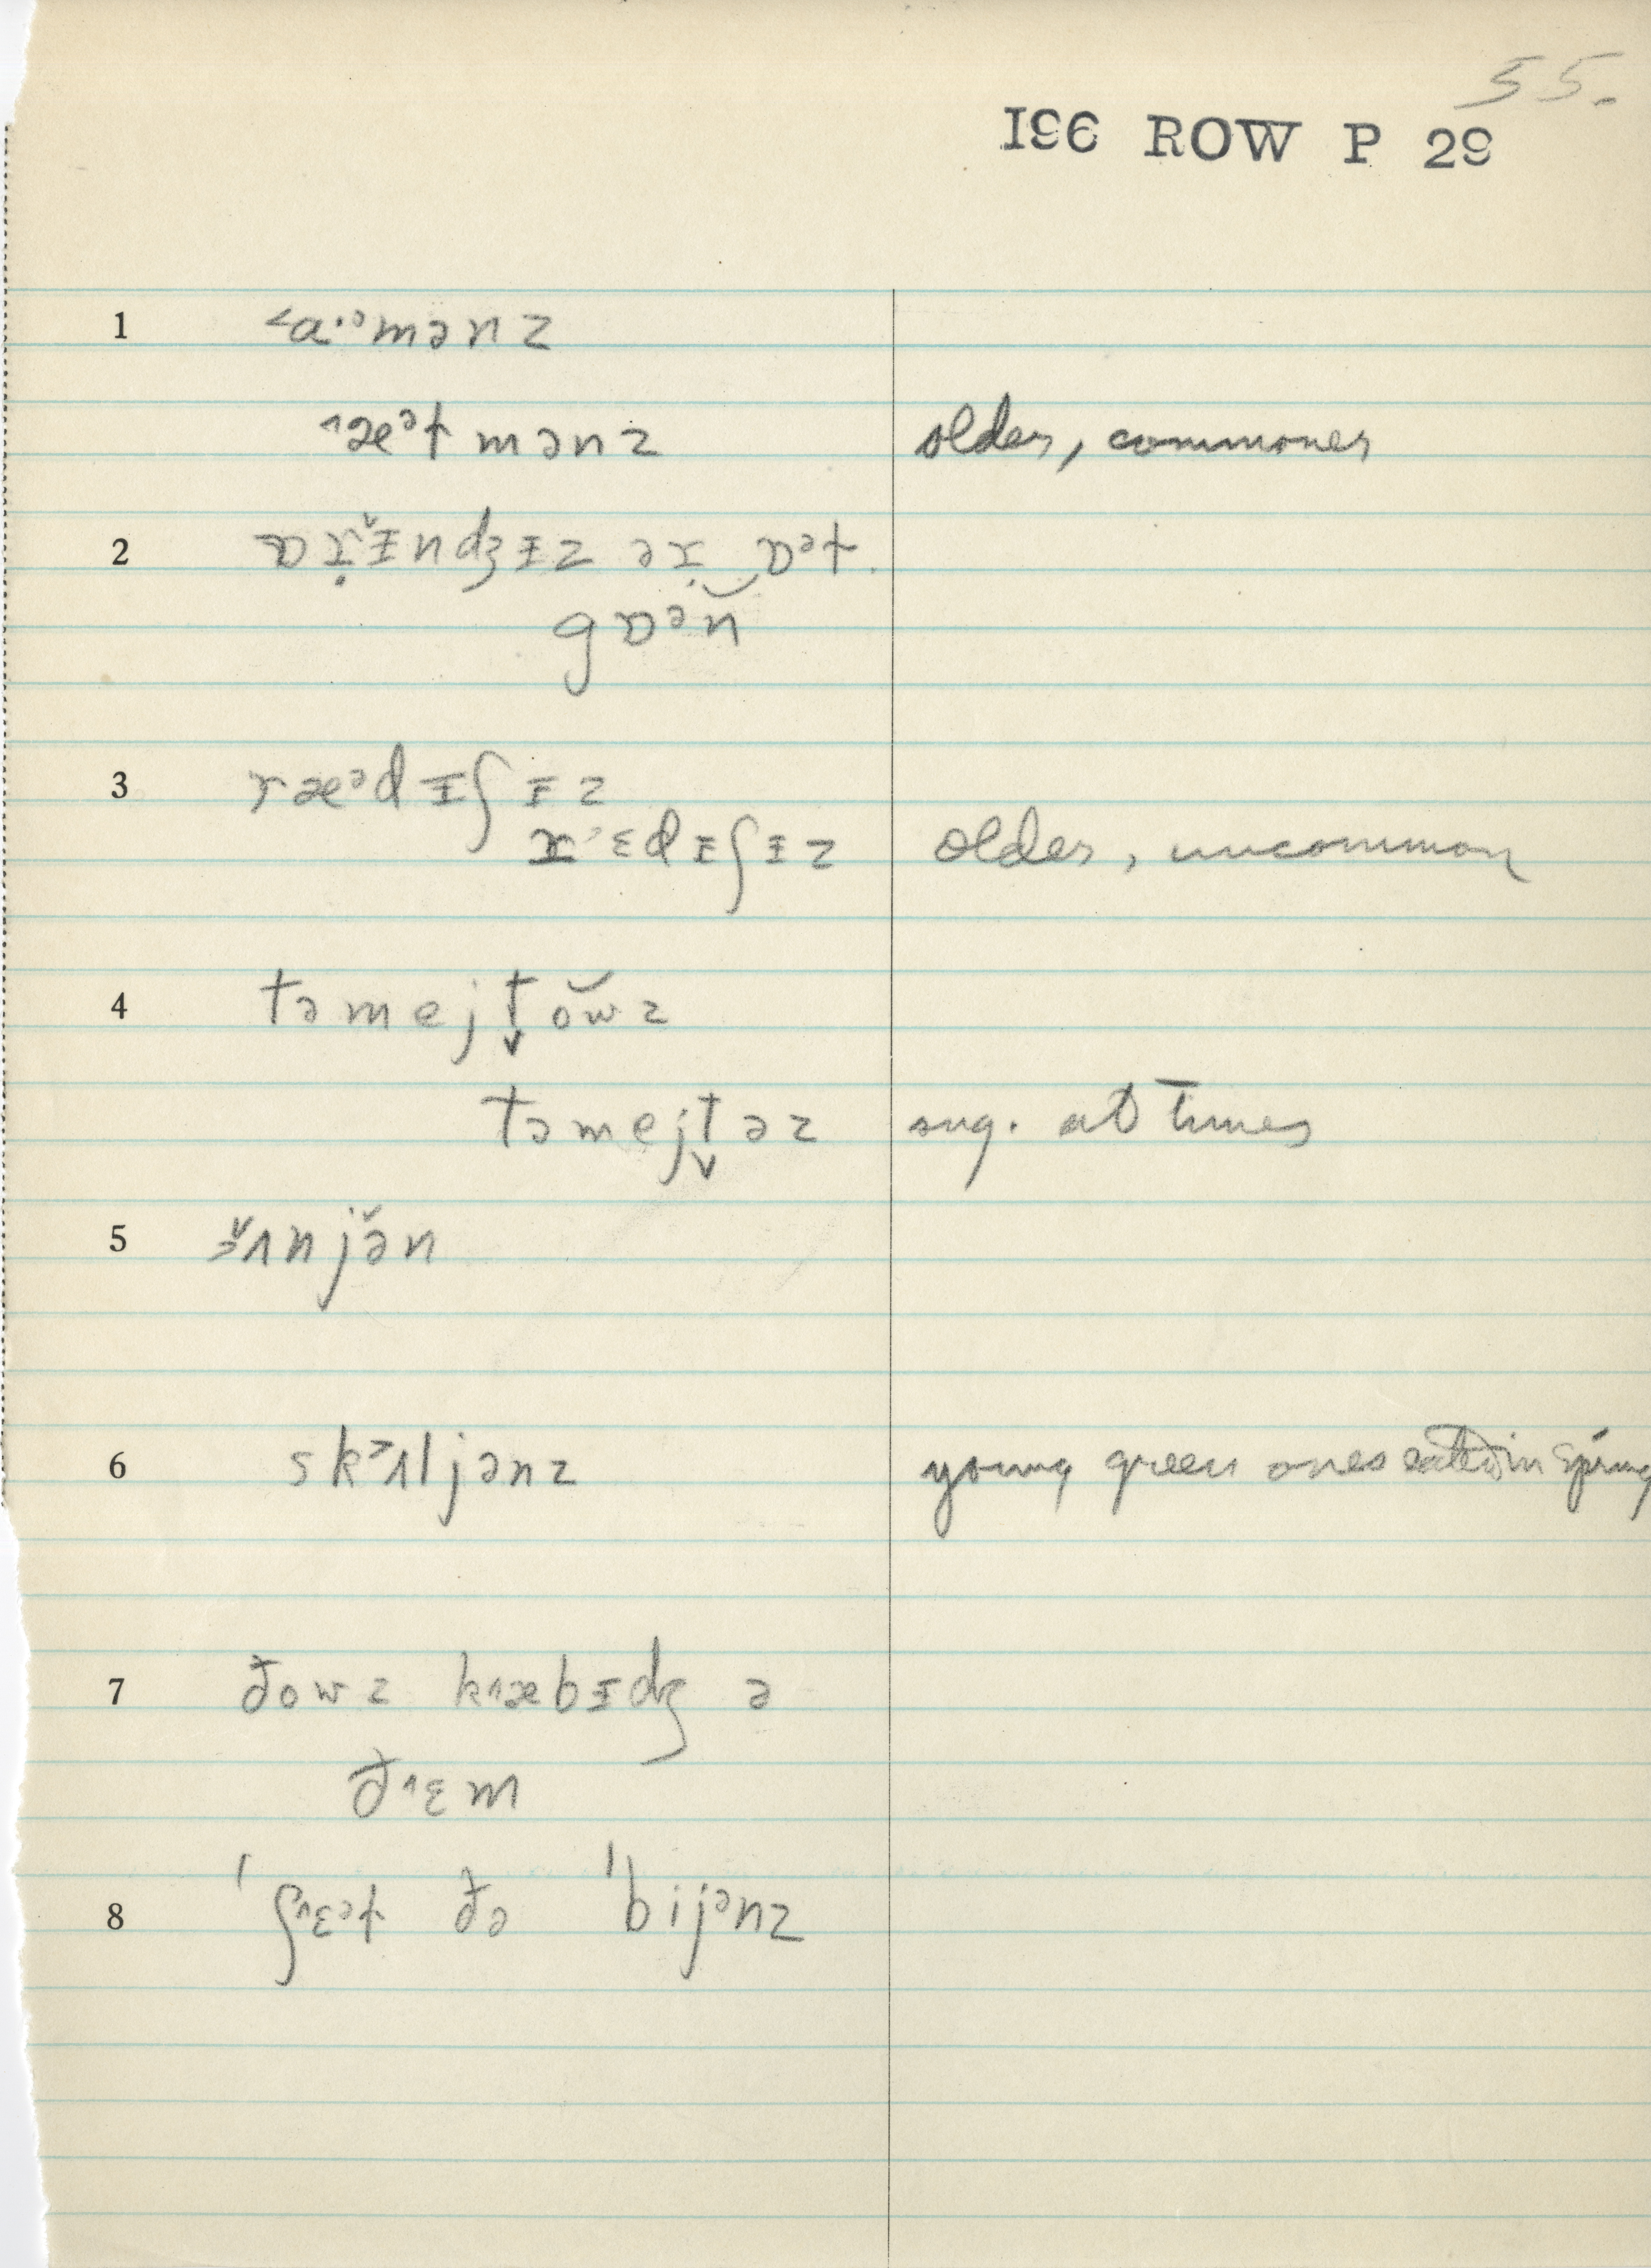 55.
I96 ROW P 29
1 ˂a·ᵊmənz
˄æᵊɫmənz older, commoner
2 ɒɪ̣̌ᵻndʒᵻz əɪ̣‿ɒᵊɫ
gɒᵊn̆
3 ræᵊdᵻʃᵻz
r˄ɛdᵻʃᵻz older, uncommon
4 təmejt̬ŏw̆z
təmejt̬əz sug. at times
5 ʌnjə̌n
6 sk˃ʌljənz young green ones eaten in spring
7 ðowz k˄æbᵻdʒ ə
ð˄ɛm
8 ˈʃ˄ɛᵊɫ ðə ˈbijᵊnz